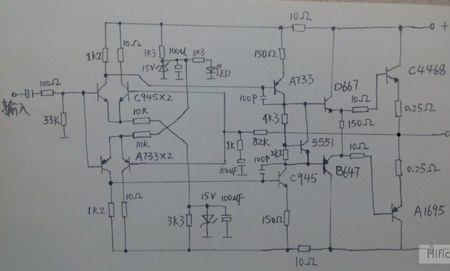 10Ω
+
1K2
10Ω
3K3
100μf
3K3
150Ω
15V
LED
A733
D667
C4468
100Ω
C945×2
100P
10Ω
0.25Ω
输入
10K
4K3
33K
10K
82K
5551
150Ω
1K
2K2
A733×2
100P
10Ω
0.25Ω
100μF
C945
B647
1K2
10Ω
15V
100μF
3K3
150Ω
A1695
10Ω
Hific